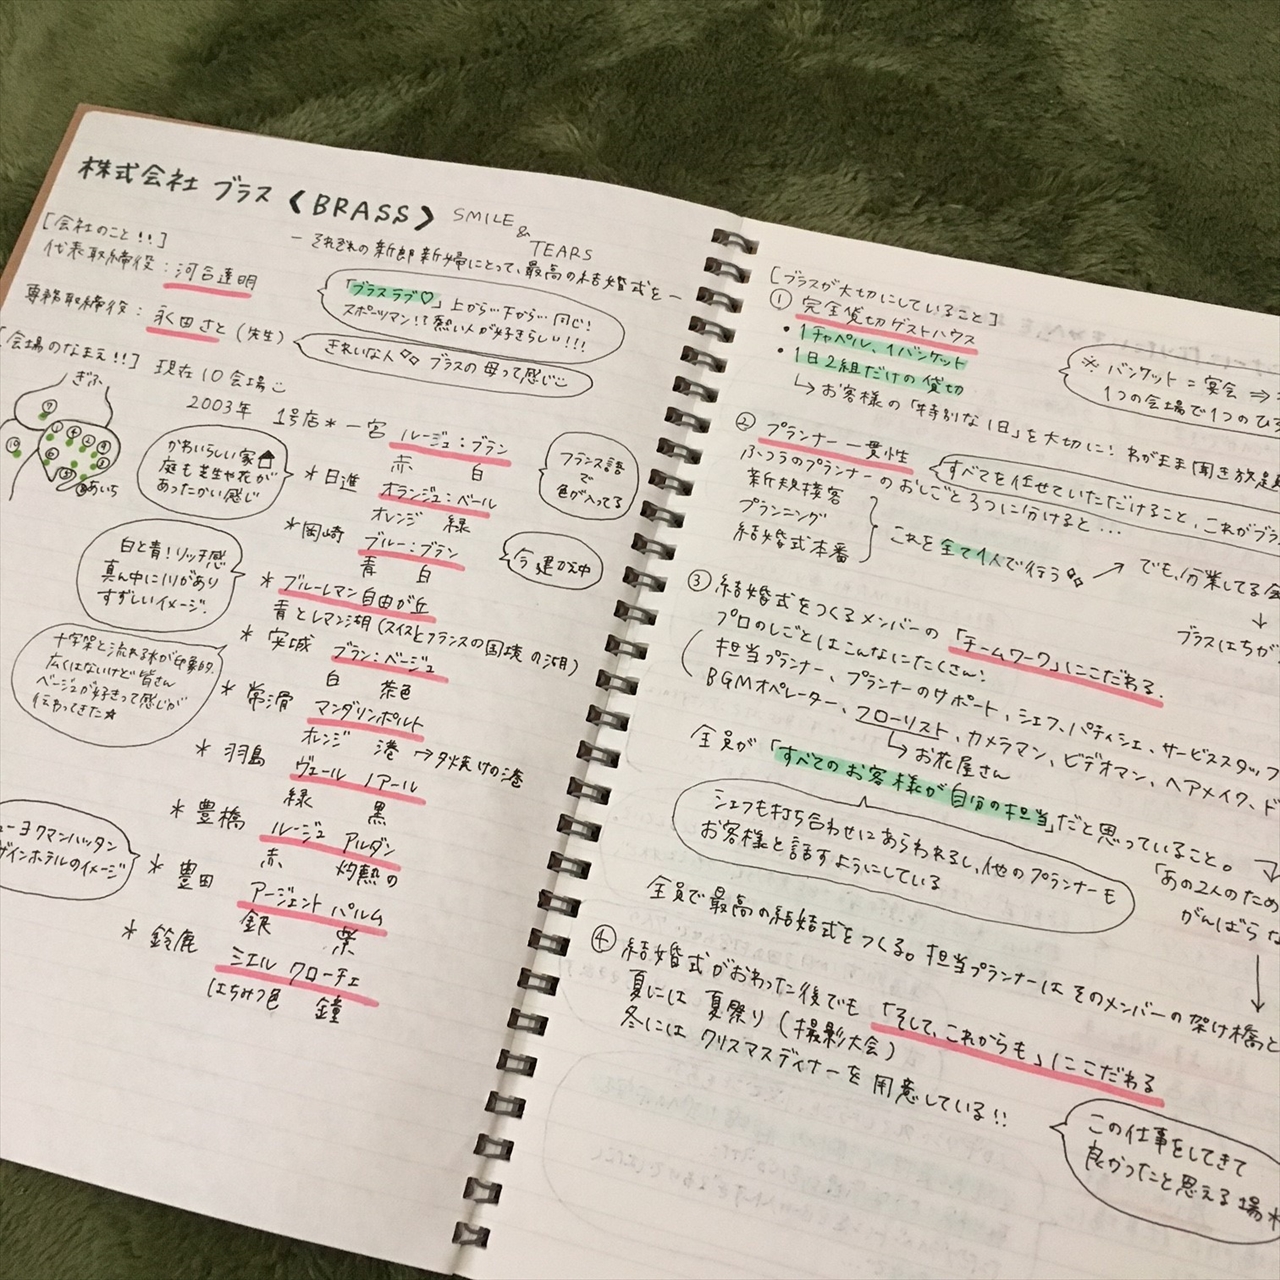 株式会社 ブラス 〈BRASS〉 SMILE
&
TEARS
― それぞれの新郎新婦にとって、最高の結婚式を ―
[会社のこと!!]
代表取締役:河合達明
「ブラスラブ♡」上から…下から…同じ!
スポーツマン!て熱い人が好きらしい!!!
専務取締役:永田さと(先生)
きれいな人 ブラスの母って感じ
[会場のなまえ!!] 現在10会場
ぎふ
あいち
2003年 1号店*一宮 ルージュ:ブラン
赤 白
フランス語
で
色が入ってる
かわいらしい家
庭も芝生や花が
あったかい感じ
*日進 オランジュ:ベール
オレンジ 緑
*岡崎 ブルー:ブラン
青 白
今建設中
白と青!リッチ感
真ん中に川があり
すずしいイメージ!
*ブルーレマン自由が丘
青とレマン湖(スイスとフランスの国境の湖)
十字架と流れる水が印象的
広くはないけど皆さん
ベージュが好きって感じが
伝わってきた☆
*安城 ブラン:ベージュ
白 茶色
*常滑 マンダリンポルト
オレンジ 港 →夕焼けの港
*羽島 ヴェール ノアール
緑 黒
*豊橋 ルージュ アルダン
赤 灼熱の
ューヨクマンハッタン
ザインホテルのイメージ
*豊田 アージェント パルム
銀 紫
*鈴鹿 ミエル クローチェ
はちみつ色 鐘
[ブラスが大切にしていること]
① 完全貸切ゲストハウス
・1チャペル、1バンケット
・1日2組だけの貸切
↳お客様の「特別な1日」を大切に!わがまま聞き放題
※バンケット=宴会 ⇒
1つの会場で1つのひろ
② プランナー一貫性
すべてを任せていただけること、これがブラ
ふつうのプランナーのおしごと3つに分けると…
新規接客
プランニング
結婚式本番
これを全て1人で行う
でも、分業してる会
↓
ブラスはちが
③ 結婚式をつくるメンバーの「チームワーク」にこだわる.
プロのしごとはこんなにたくさん!
担当プランナー、プランナーのサポート、シェフ、パティシエ、サービススタッフ
BGMオペレーター、フローリスト、カメラマン、ビデオマン、ヘアメイク、ド
↳お花屋さん
全員が「すべてのお客様が自分の担当」だと思っていること。
シェフも打ち合わせにあらわれるし、他のプランナーも
お客様と話すようにしている
「あの2人のため
がんばらな
全員で最高の結婚式をつくる。担当プランナーはそのメンバーの架け橋と
④ 結婚式がおわった後でも「そして、これからも」にこだわる
夏には 夏祭り(撮影大会)
冬には クリスマスディナーを用意している!!
この仕事をしてきて
良かったと思える場